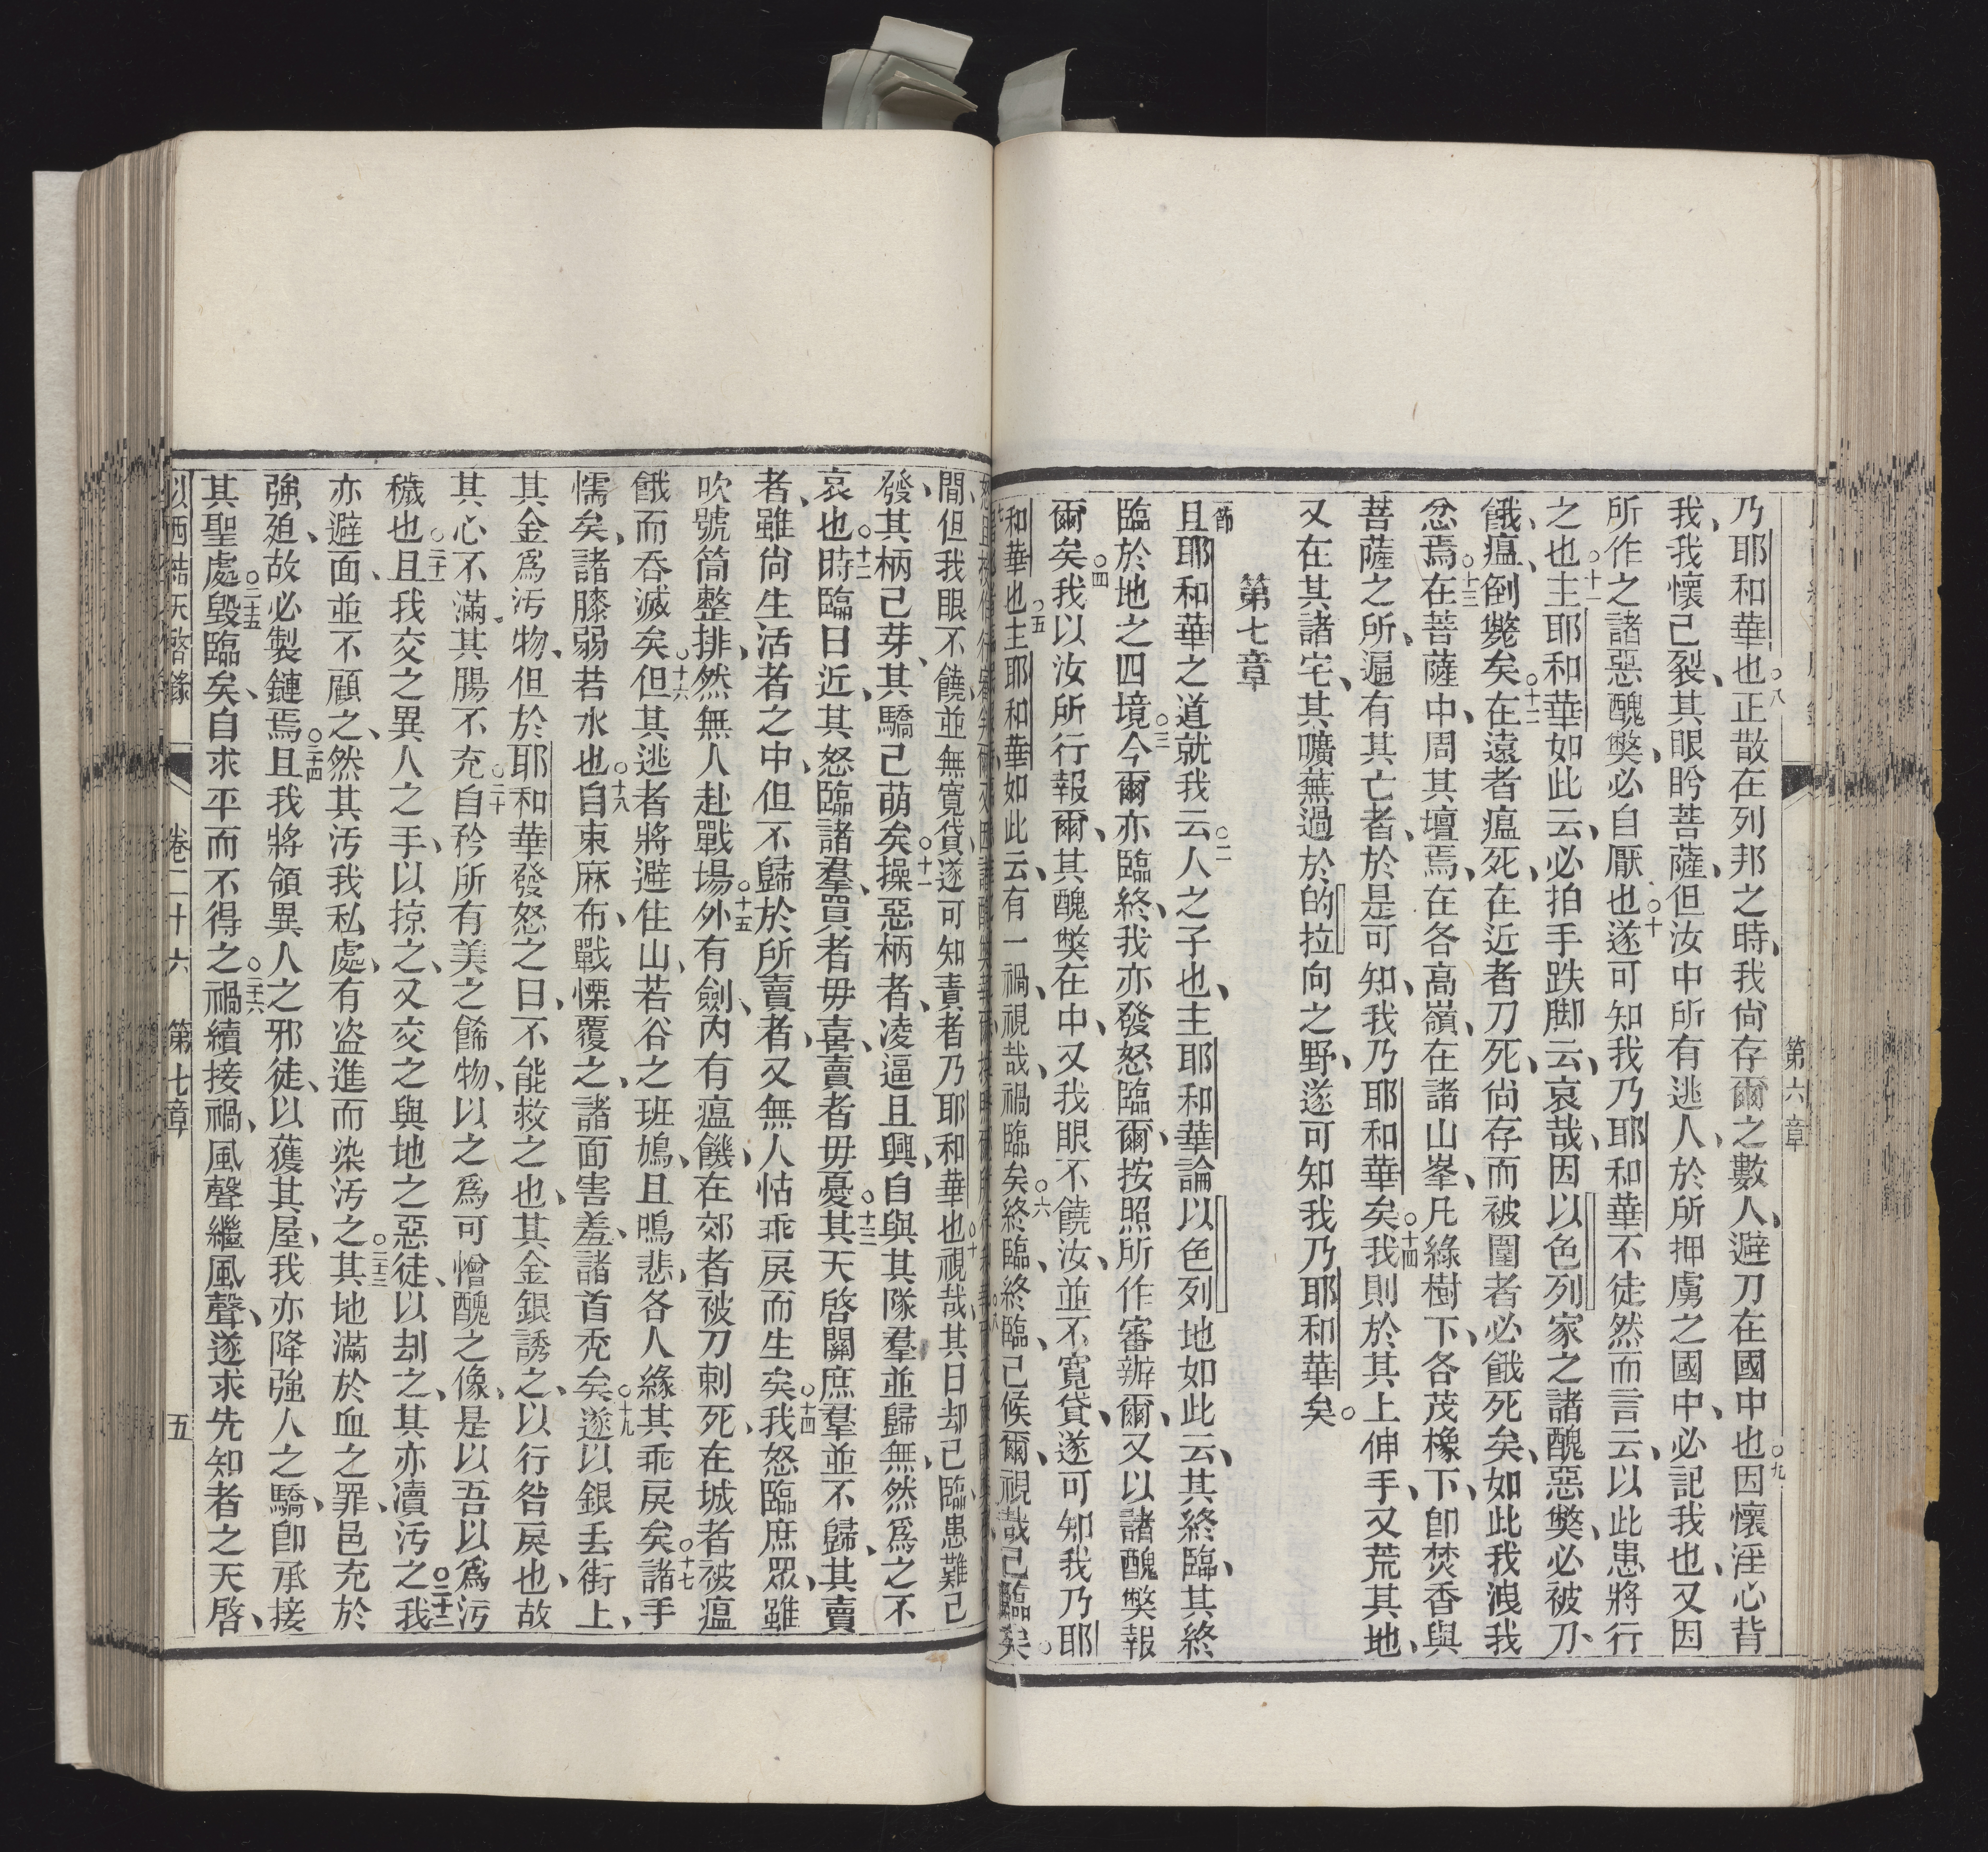 第六章
乃耶和華也○八正散在列邦之時、我尙存爾之數人、避刀在國中也○九因懷淫心背
我、我懷己裂、其眼盻菩薩、但汝中所有逃人、於所押虜之國中、必記我也、又因
所作之諸惡醜獘、必自厭也○十遂可知我乃耶和華不徒然而言云、以此患將行
之也○十一主耶和華如此云、必拍手跌脚云、哀哉、因以色列家之諸醜惡獘、必被刀、
餓、瘟、倒斃矣○十二在遠者瘟死、在近者刀死、尙存而被圍者必餓死矣、如此我洩我
忿焉○十三在菩薩中、周其壇焉、在各高嶺、在諸山峯、凡綠樹下、各茂橡下、卽焚香與
菩薩之所、遍有其亡者、於是可知、我乃耶和華矣○十四我則於其上伸手、又荒其地、
又在其諸宅、其曠蕪過於的拉向之野、遂可知我乃耶和華矣○
第七章
節且耶和華之道就我云○二人之子也、主耶和華論以色列地如此云、其終臨、其終
臨於地之四境○三今爾亦臨終、我亦發怒臨爾、按照所作審辦爾、又以諸醜獘報
爾矣○四我以汝所行報爾、其醜獘在中、又我眼不饒汝、並不寬貸、遂可知我乃耶
和華也○五主耶和華如此云、有一禍、視哉、禍臨矣○六終臨、終臨、己候爾、視哉己臨矣○
間、但我眼不饒、並無寬貸、遂可知責者乃耶和華也○十視哉、其日却己臨、患難己
發、其柄己芽、其驕己萌矣○十一操惡柄者、凌逼且興、自與其隊羣並歸無、然爲之不
哀也○十二時臨日近、其怒臨諸羣、買者毋喜、賣者毋憂○十三其天啓關庶羣並不歸、其賣
者、雖尙生活者之中、但不歸於所賣者、又無人怙乖戾而生矣○十四我怒臨庶眾、雖
吹號筒整排、然無人赴戰場○十五外有劍、內有瘟饑、在郊者被刀刺死、在城者被瘟
餓而吞滅矣○十六但其逃者將避住山、若谷之班鳩、且鳴悲、各人緣其乖戾矣○十七諸手
懦矣、諸膝弱若水也○十八自束麻布、戰慄覆之、諸面害羞、諸首禿矣○十九遂以銀丢街上、
其金爲汚物、但於耶和華發怒之日、不能救之也、其金銀誘之、以行咎戾也、故
其心不滿、其腸不充○二十自矜所有美之餙物、以之爲可憎醜之像、是以吾以爲汚
穢也○二十一且我交之異人之手、以掠之、又交之與地之惡徒、以刦之、其亦瀆汚之○二十二我
亦避面、並不顧之、然其汚我私處、有盜進而染汚之○二十三其地滿於血之罪、邑充於
強廹、故必製鏈焉○二十四且我將領異人之邪徒、以獲其屋、我亦降強人之驕、卽承接
其聖處○二十五毀臨矣、自求平而不得之○二十六禍續接禍、風聲繼風聲、遂求先知者之天啓、
以西結天啓錄　卷二十六　第七章　五